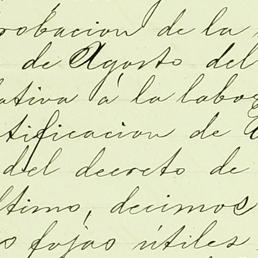 robacion de la
de Agosto del
lativa á la labo
tificacion de
del decreto de
ltimo, decimos
s fojas útiles